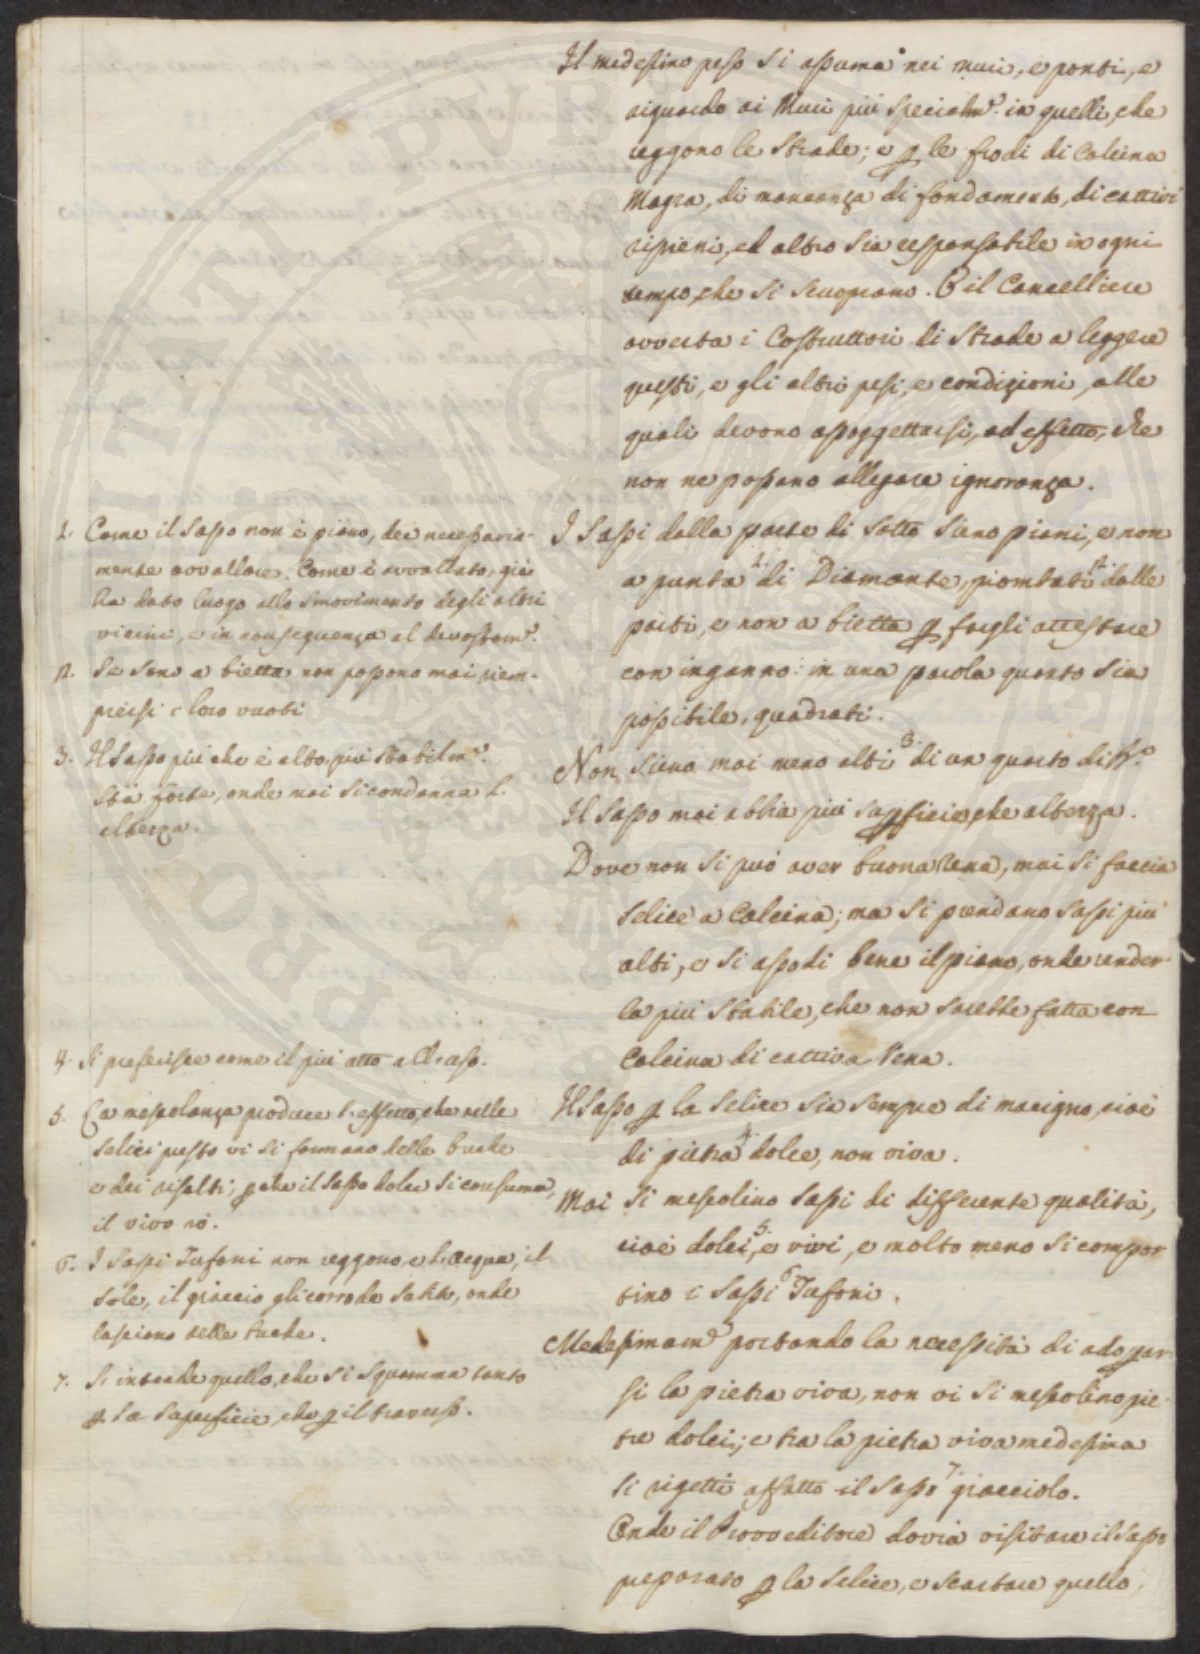 Il medesimo peso si assuma nei muri, e ponti, e
riguardo ai Muri più specialm.e in quelli, che
reggono le Strade; e p le frodi di Calcina
Magra, di mancanza di fondamento, di cattivi
ripieni, ed altro sia responsabile in ogni
tempo, che si scuoprano. E il Cancelliere
avverta i Costruttori di Strade a leggere
questi, e gli altri pesi, e condizioni, alle
quali devono assoggettarsi, ad effetto, che
non ne possano allegare ignoranza.
I Sassi dalla parte di sotto sieno piani, e non
a punta 1. di Diamante, piombati 2. dalle
parti, e non a bietta p fargli attestare
con inganno: in una parola quanto sia
possibile, quadrati.
Non sieno mai meno alti 3. di un quarto di Br.o
Il Sasso mai abbia più superficie, che altezza.
Dove non si può aver buona Rena, mai si faccia
Selice a Calcina; ma si prendano Sassi più
alti, e si assodi bene il piano, onde render-
la più stabile, che non sarebbe fatta con
Calcina di cattiva Rena.
Il Sasso p la Selice sia sempre di macigno, cioè
di pietra 4. dolce, non viva.
Mai si mescolino Sassi di differente qualità,
cioè dolci, 5. e vivi, e molto meno si compor
tino i Sassi 6 Tufoni.
Medesimam.e portando la necessità di adoprar-
si la pietra viva, non vi si mescolino pie-
tre dolci; e tra la pietra viva medesima
si rigetti affatto il Sasso 7. giacciolo.
Onde il Provveditore dovrà visitare il Sasso
preparato p la Selice, e scartare quello,
1. Come il Sasso non è piano, dee necessaria-
mente avvallare. Come è avvallato, già
ha dato luogo allo smovimento degli altri
vicini, e in conseguenza al devastam.o
2. Se sono a bietta non possono mai riem-
piersi i loro vuoti
3. Il Sasso più che è alto, più stabilm.e
sta forte, onde mai si condanna l.
altezza.
4. Si preferisce come il più atto all'uso.
5. La mescolanza produce l'effetto, che nelle
Selici presto vi si formano delle buche
e dei risalti; p che il Sasso dolce si consuma,
il vivo nò.
6. I Sassi Tufoni non reggono, e l'acqua, il
Sole, il giaccio gli corrode subito, onde
lasciano delle buche.
7. Si intende quello, che si squamma tanto
p la superficie, che p il traverso.